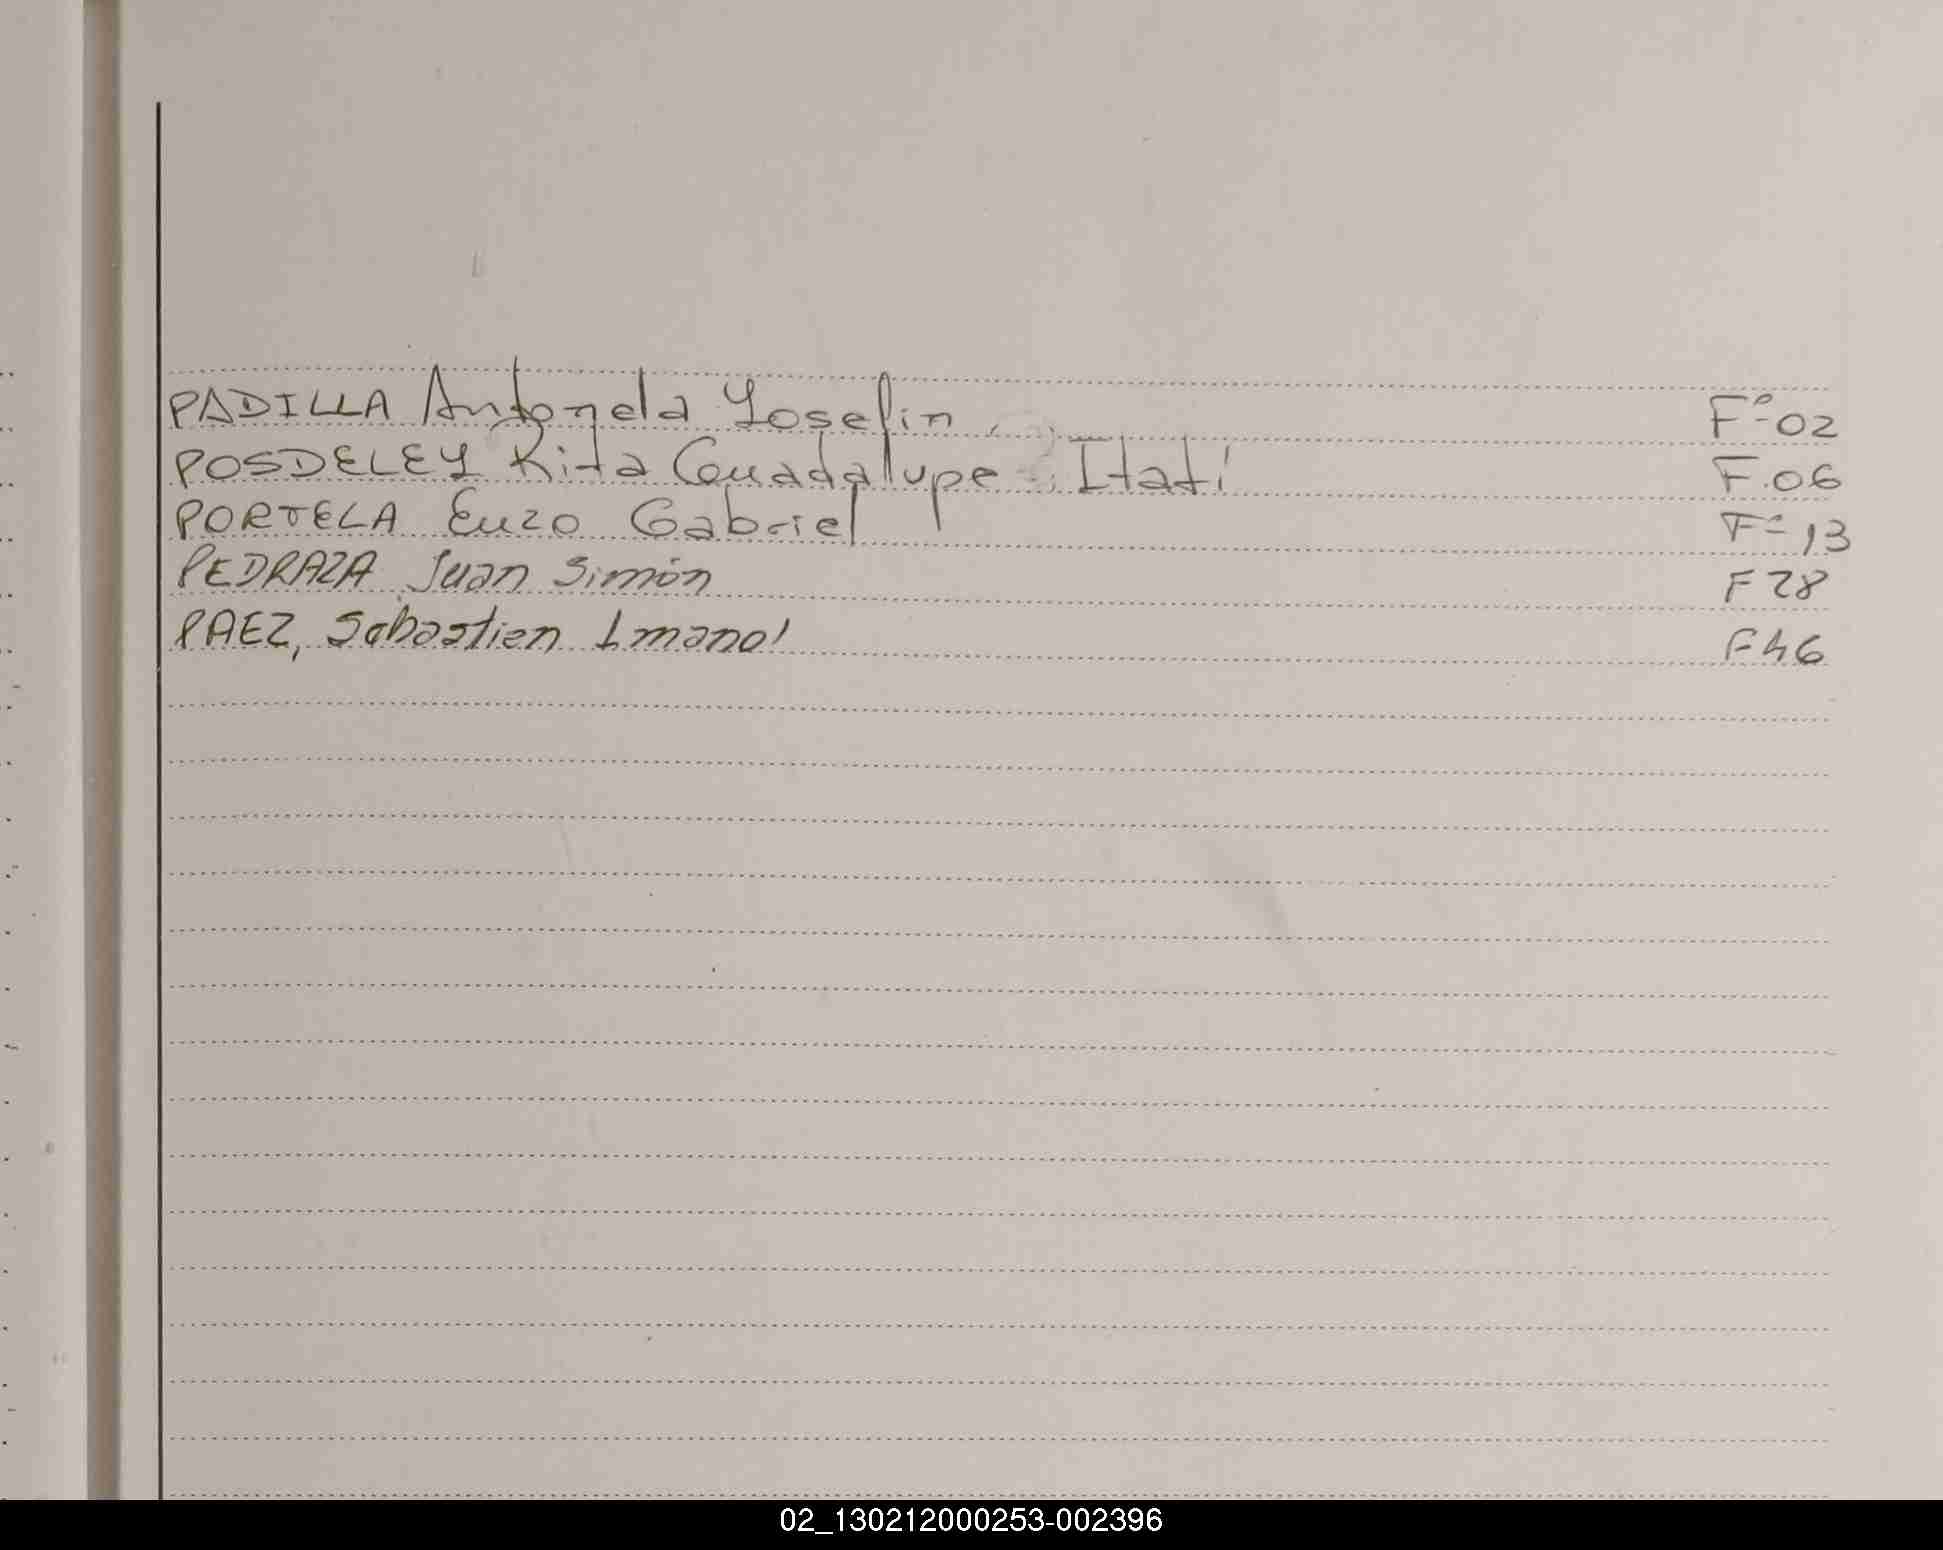 PADILLA Antonela Yoselin F° 02
POSDELEY Rita Guadalupe Itatí F. 06
PORTELA Enzo Gabriel F° 13
PEDRAZA Juan Simón F 28
PAEZ, Sebastien Imanol F 46
02_130212000253-002396